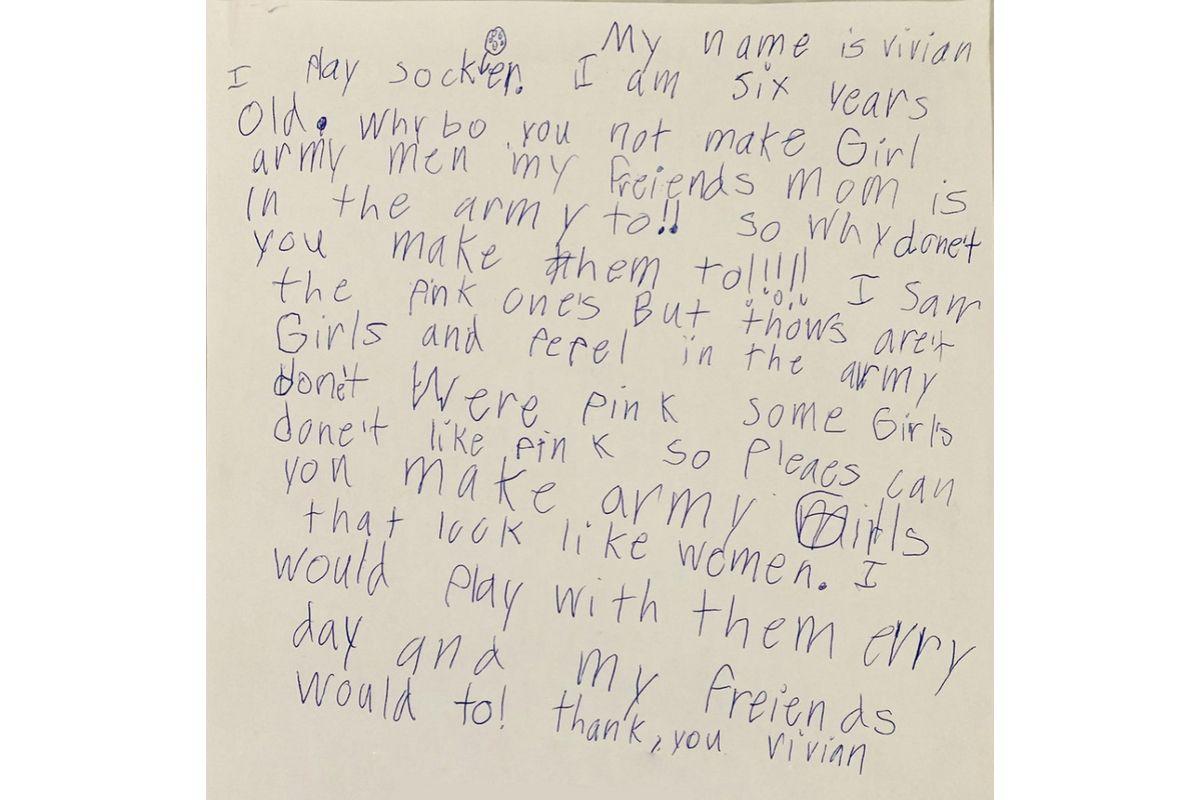 My name is vivian
I play socker. I am six years
Old. Why bo you not make Girl
army men my freiends mom is
in the army to!! so why done't
you make them to!!!!! I sarr
the pink one's But thows are't
Girls and pepel in the army
don't Were pink some Girls
done't like pink so pleaes can
you make army Girls
that look like women. I
would play with them evry
day and my freiends
would to! thank, you vivian